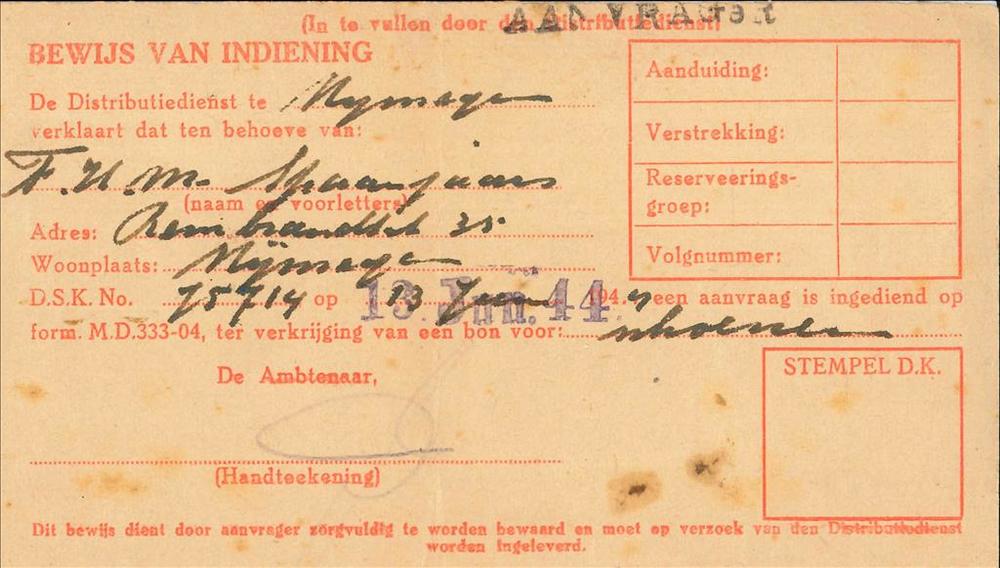 (In te vullen door de Distributiedienst)
AANVRAGER
BEWIJS VAN INDIENING
De Distributiedienst te Nymegen
verklaart dat ten behoeve van:
F.H.M. Spaanjaars
(naam en voorletters)
Adres: Rembrandtstr 35
Woonplaats: Nijmegen
D.S.K. No. 75714 op 13 Juni 1944 een aanvraag is ingediend op
13. Jun. 44.
form. M.D.333-04, ter verkrijging van een bon voor: schoenen
De Ambtenaar,
(Handteekening)
Aanduiding:
Verstrekking:
Reserveerings-
groep:
Volgnummer:
STEMPEL D.K.
Dit bewijs dient door aanvrager zorgvuldig te worden bewaard en moet op verzoek van den Distributiedienst
worden ingeleverd.